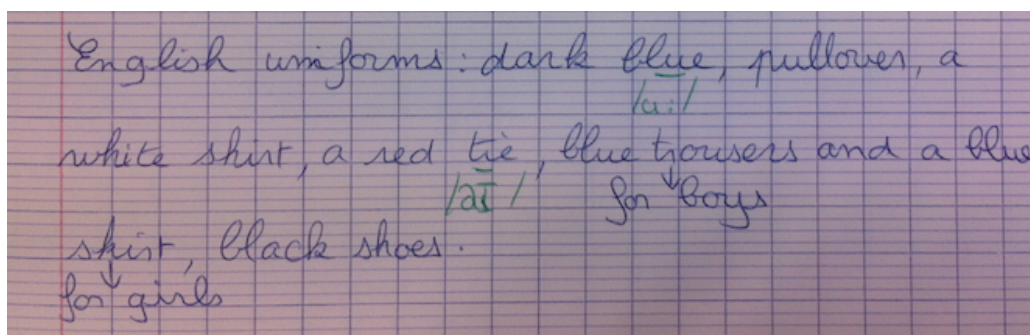 English uniforms: dark blue, pullover, a
/u:/
white shirt, a red tie, blue trousers and a blue
/aɪ/ for boys
skirt, black shoes.
for girls